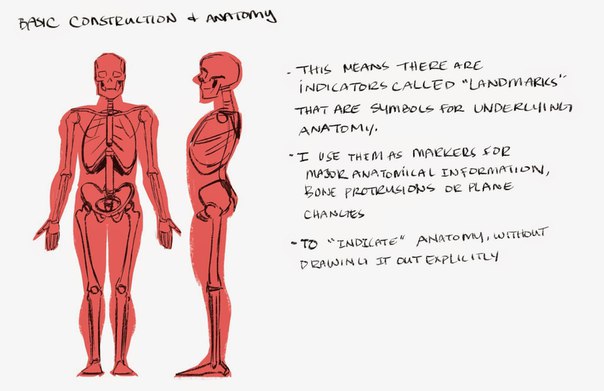 BASIC CONSTRUCTION & ANATOMY
- THIS MEANS THERE ARE
INDICATORS CALLED "LANDMARKS"
THAT ARE SYMBOLS FOR UNDERLYING
ANATOMY.
- I USE THEM AS MARKERS FOR
MAJOR ANATOMICAL INFORMATION,
BONE PROTRUSIONS OR PLANE
CHANGES
- TO "INDICATE" ANATOMY, WITHOUT
DRAWING IT OUT EXPLICITLY